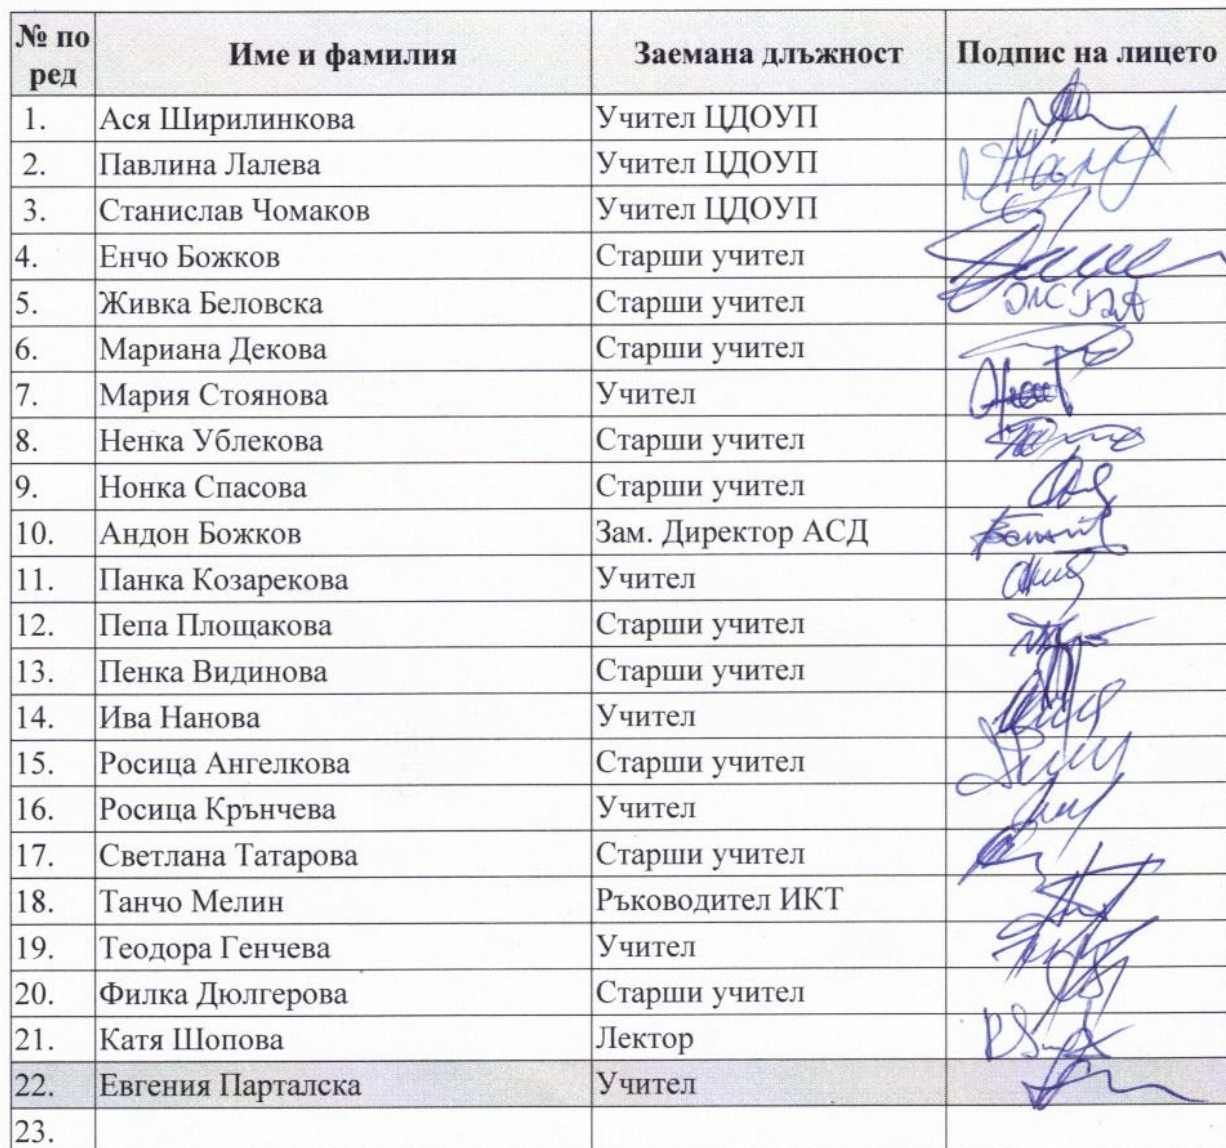 № по ред Име и фамилия Заемана длъжност Подпис на лицето
1. Ася Ширилинкова Учител ЦДОУП
2. Павлина Лалева Учител ЦДОУП
3. Станислав Чомаков Учител ЦДОУП
4. Енчо Божков Старши учител
5. Живка Беловска Старши учител
6. Мариана Декова Старши учител
7. Мария Стоянова Учител
8. Ненка Ублекова Старши учител
9. Нонка Спасова Старши учител
10. Андон Божков Зам. Директор АСД
11. Панка Козарекова Учител
12. Пепа Площакова Старши учител
13. Пенка Видинова Старши учител
14. Ива Нанова Учител
15. Росица Ангелкова Старши учител
16. Росица Крънчева Учител
17. Светлана Татарова Старши учител
18. Танчо Мелин Ръководител ИКТ
19. Теодора Генчева Учител
20. Филка Дюлгерова Старши учител
21. Катя Шопова Лектор
22. Евгения Парталска Учител
23.